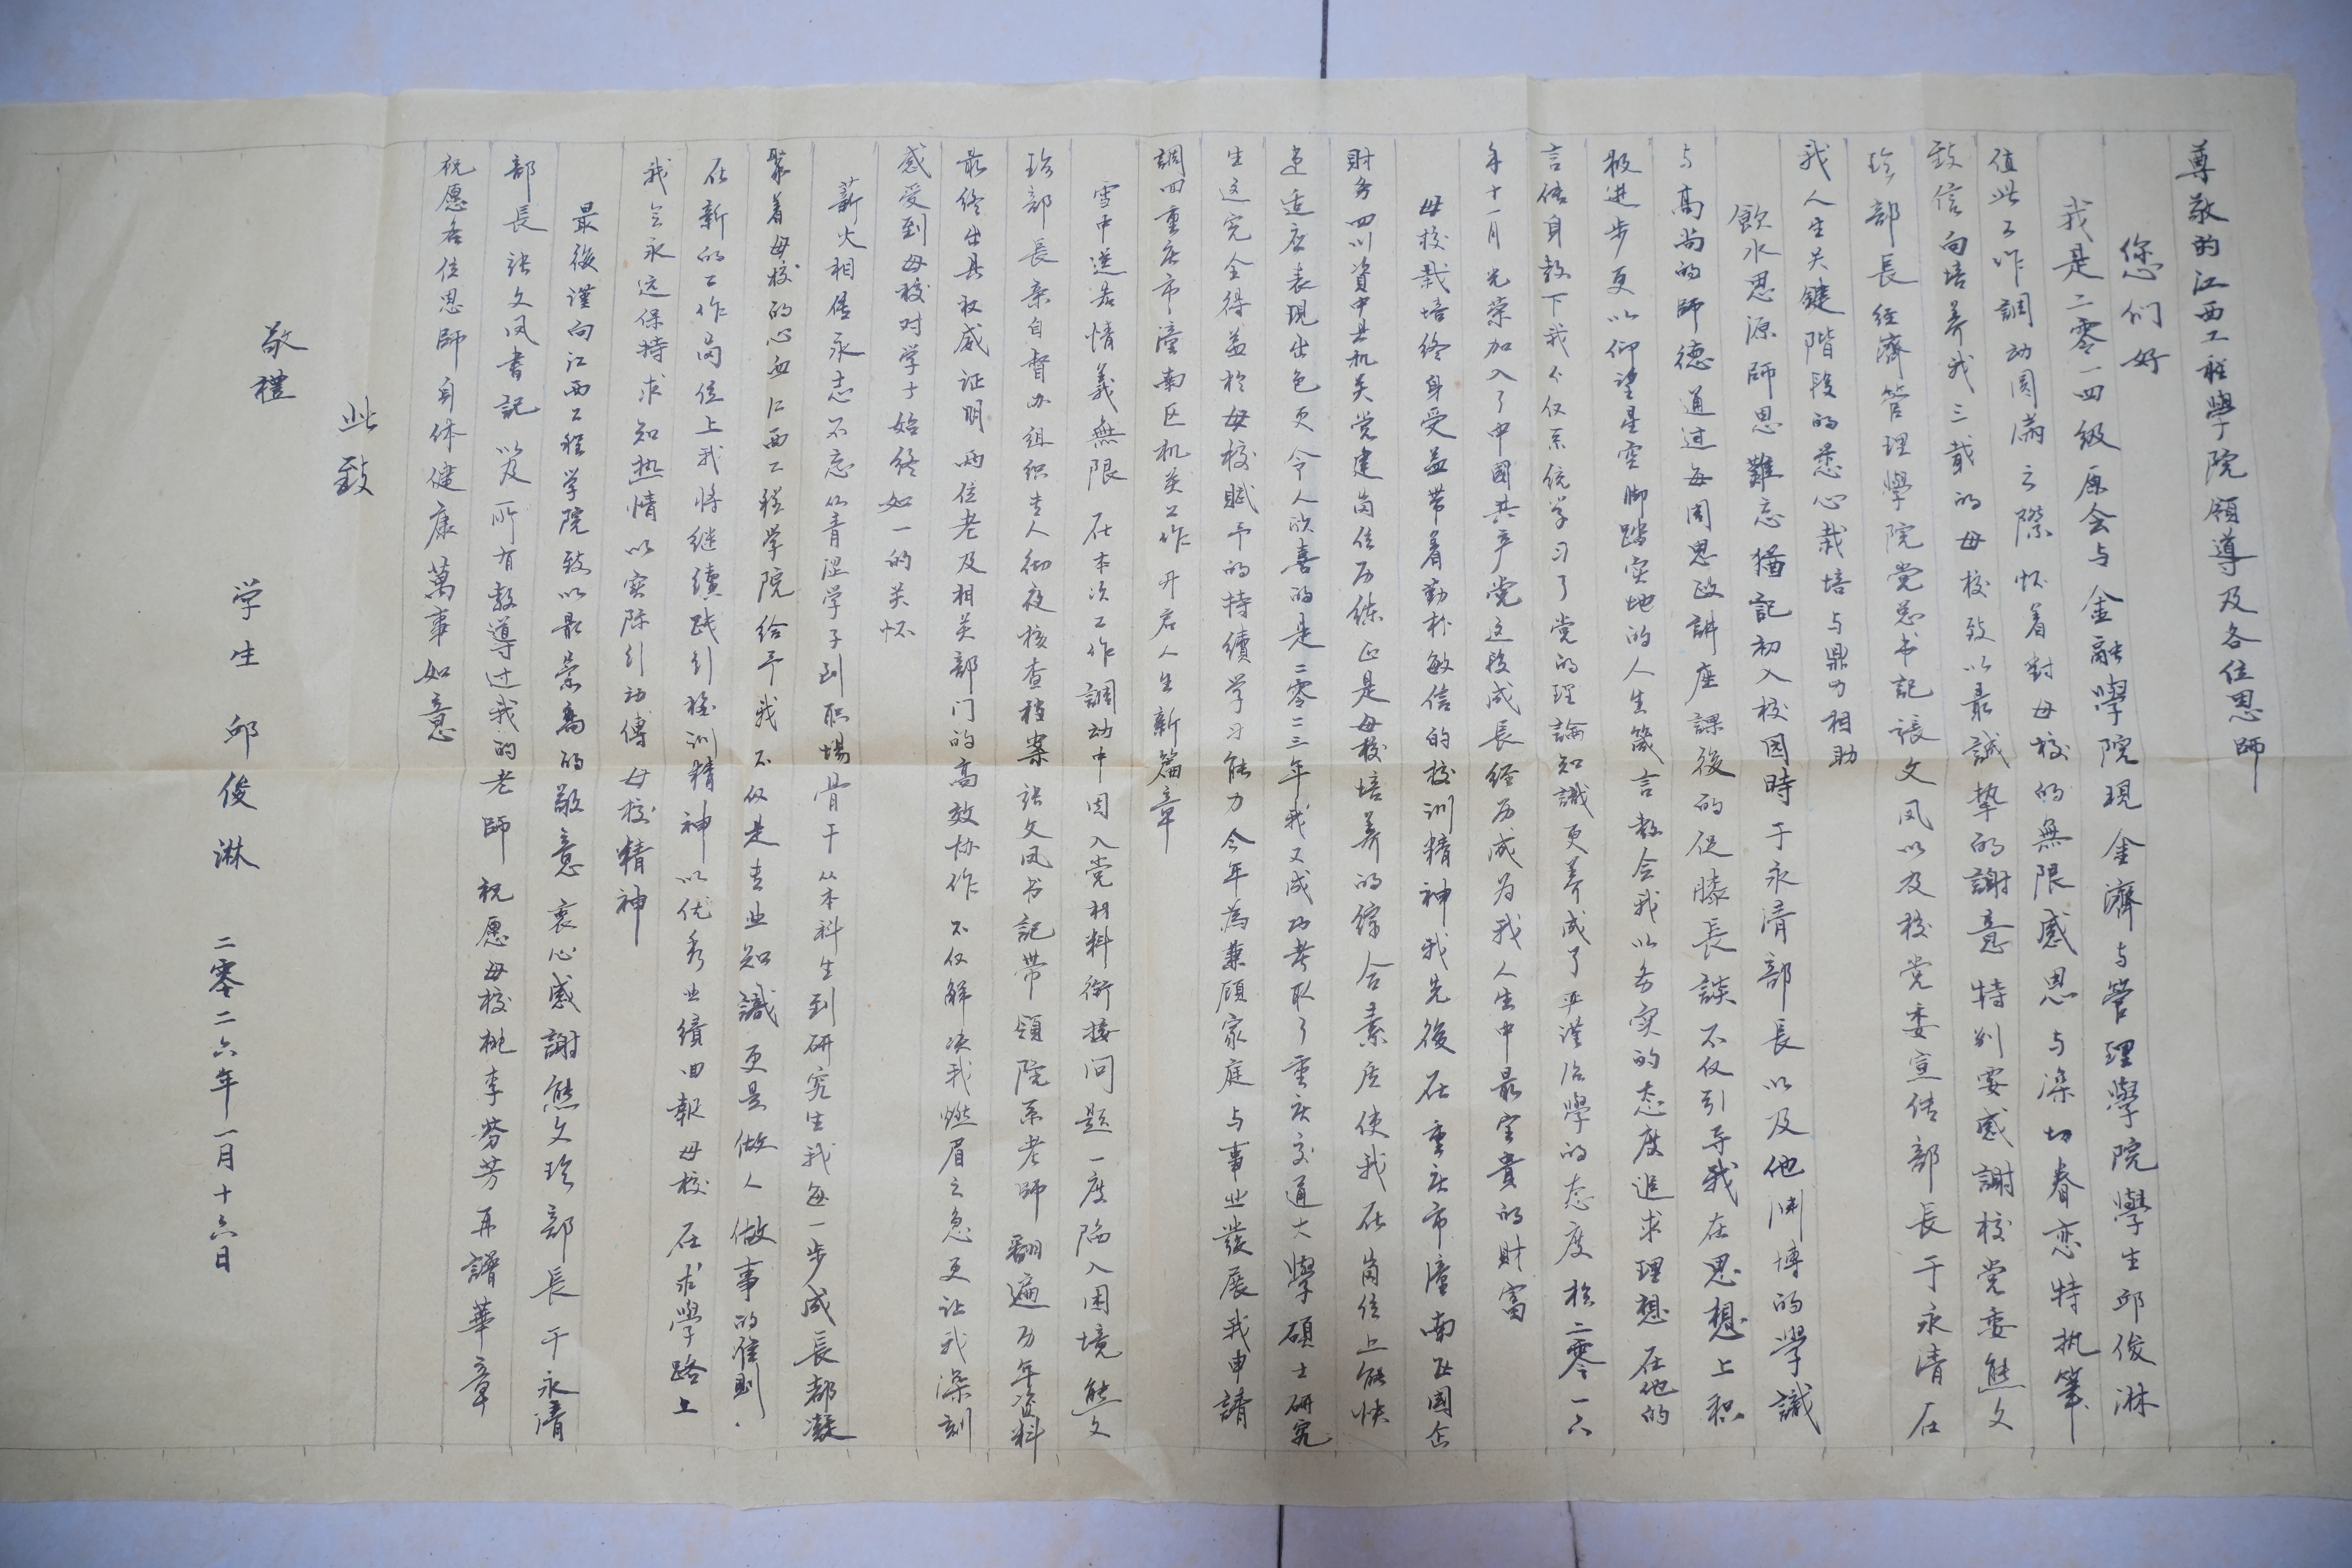 尊敬的江西工程學院領導及各位恩師
您们好
我是二零一四級原会与金融學院現金濟与管理學院學生邱俊淋
值此工作調动圆滿之際怀着對母校的無限感恩与深切眷恋特执筆
致信向培养我三載的母校致以最誠摯的謝意特别要感謝校党委熊文
珍部長经濟管理學院党总书記張文凤以及校党委宣传部長于永清在
我人生关鍵階段的悉心栽培与鼎力相助
飲水思源師恩難忘猶記初入校園時于永清部長以及他渊博的學識
与高尚的師德通过每周思政講座課後的促膝長談不仅引导我在思想上积
极进步更以仰望星空脚踏实地的人生箴言教会我以务实的态度追求理想在他的
言传身教下我不仅系统学习了党的理論知識更养成了严谨治學的态度於二零一六
年十一月光荣加入了中國共产党这段成長经历成为我人生中最宝貴的財富
母校栽培终身受益带着勤朴敏信的校训精神我先後在重庆市潼南区國企
財务四川資中县机关党建岗位历练正是母校培养的综合素质使我在崗位上能快
速适应表現出色更令人欣喜的是二零二三年我又成功考取了重庆交通大學碩士研究
生这完全得益於母校賦予的持續学习能力今年為兼顾家庭与事业發展我申請
調回重庆市潼南区机关工作开启人生新篇章
雪中送炭情義無限在本次工作調动中因入党材料衔接问题一度陷入困境熊文
珍部長亲自督办组织专人彻夜核查档案張文凤书記带領院系老師翻遍历年资料
最终出具权威证明两位老及相关部门的高效协作不仅解决我燃眉之急更让我深刻
感受到母校对学子始终如一的关怀
薪火相传永志不忘从青涩学子到职場骨干从本科生到研究生我每一步成長都凝
聚着母校的心血江西工程学院给予我不仅是专业知識更是做人做事的准則.
在新的工作岗位上我将继續践行校训精神以优秀业績回報母校在求學路上
我会永远保持求知热情以实际行动傳母校精神
最後谨向江西工程学院致以最崇高的敬意衷心感謝熊文珍部長于永清
部長張文凤書記以及所有教導过我的老師祝愿母校桃李芬芳再譜華章
祝愿各位恩師身体健康萬事如意
此致
敬禮
学生邱俊淋二零二六年一月十六日